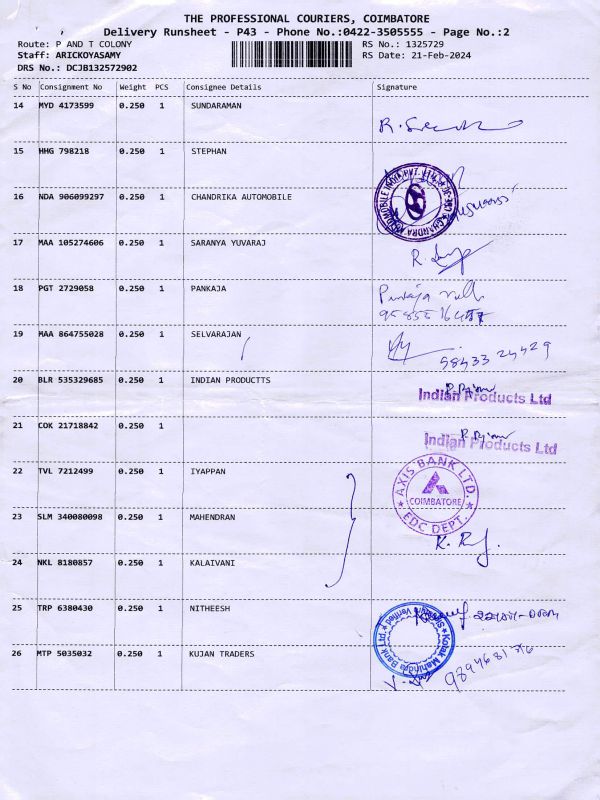 THE PROFESSIONAL COURIERS, COIMBATORE
Delivery Runsheet - P43 - Phone No.:0422-3505555 - Page No.:2
Route: P AND T COLONY
RS No.: 1325729
Staff: ARICKOYASAMY
RS Date: 21-Feb-2024
DRS No.: DCJB132572902
S No Consignment No Weight PCS Consignee Details Signature
14 MYD 4173599 0.250 1 SUNDARAMAN
15 HHG 798218 0.250 1 STEPHAN
16 NDA 906099297 0.250 1 CHANDRIKA AUTOMOBILE
17 MAA 105274606 0.250 1 SARANYA YUVARAJ
18 PGT 2729058 0.250 1 PANKAJA
19 MAA 864755028 0.250 1 SELVARAJAN
98433 24429
20 BLR 535329685 0.250 1 INDIAN PRODUCTTS
Indian Products Ltd
21 COK 21718842 0.250 1
Indian Products Ltd
22 TVL 7212499 0.250 1 IYAPPAN
AXIS BANK LTD.
COIMBATORE
EDC DEPT.
23 SLM 340080098 0.250 1 MAHENDRAN
24 NKL 8180857 0.250 1 KALAIVANI
25 TRP 6380430 0.250 1 NITHEESH
Kotak Mahindra Bank
Signature Verified
26 MTP 5035032 0.250 1 KUJAN TRADERS